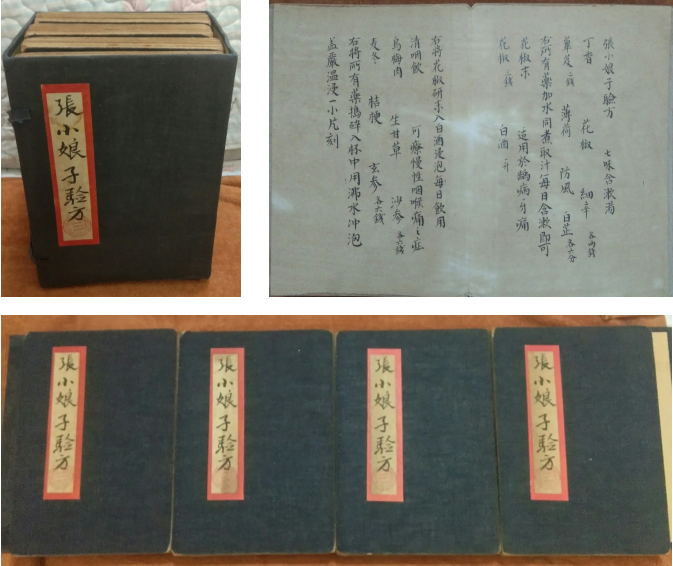 張小娘子验方
張小娘子验方 七味含漱湯
丁香 花椒 細辛 各兩錢
蓽茇 二錢 薄荷 防風 白芷 各六分
右所有藥加水同煮取汁每日含漱即可
花椒末 适用於齲病牙痛
花椒 三錢 白酒 一斤
右將花椒研末入白酒浸泡每日飲用
清咽飲 可療慢性咽喉痛之症
烏梅肉 生甘草 沙参 各六錢
麦冬 桔梗 玄参 各六錢
右將所有藥搗碎入杯中用沸水冲泡
盖嚴溫浸一小片刻
張小娘子验方
張小娘子验方
張小娘子验方
張小娘子验方